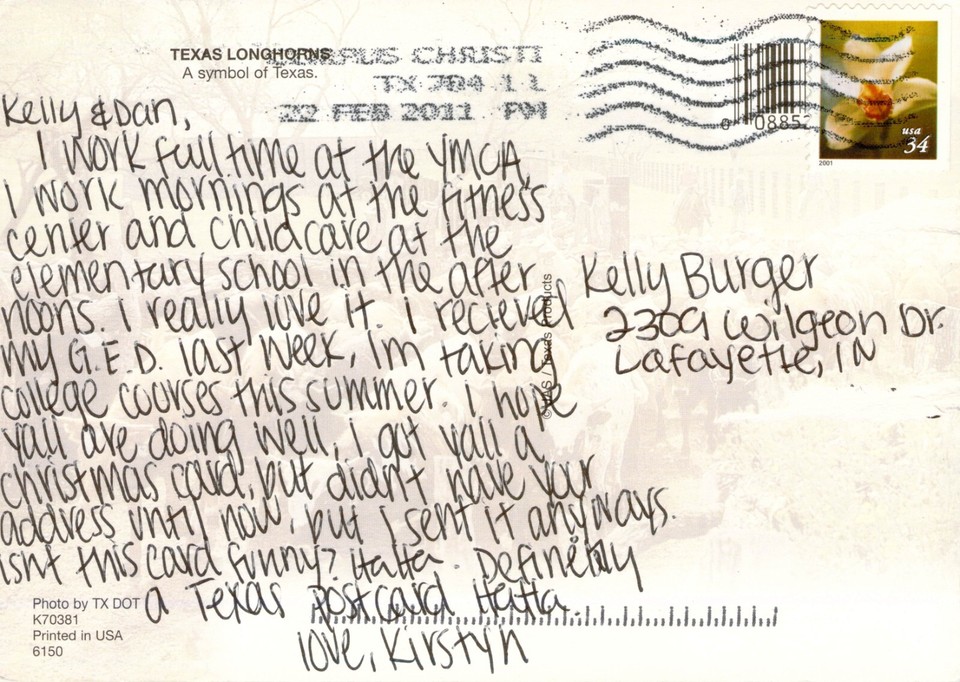 TEXAS LONGHORNS
A symbol of Texas.
CORPUS CHRISTI
TX 784 1 1
22 FEB 2011 PM
usa
34
2001
Kelly & Dan,
I work full time at the YMCA
I work mornings at the fitness
center and childcare at the
elementary school in the after
noons. I really love it. I recieved
my G.E.D. last week, I'm taking
college courses this summer. I hope
yall are doing well, I got yall a
christmas card, but didn't have your
address until now, but I sent it anyways.
isnt this card funny? HaHa. Definetly
a Texas postcard HaHa.
love, Kirstyn
Kelly Burger
2309 Wilgeon Dr.
Lafayette, IN
Photo by TX DOT
K70381
Printed in USA
6150